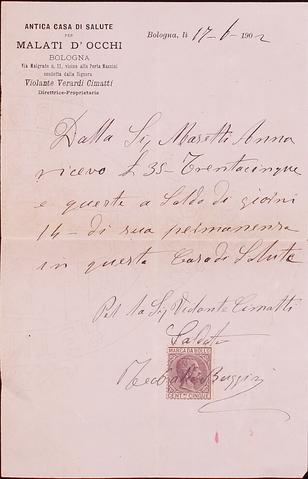 ANTICA CASA DI SALUTE
PER
MALATI D'OCCHI
BOLOGNA
Via Malgrado n. 11, vicino alla Porta Mazzini
condotta dalla Signora
Violante Verardi Cimatti
Direttrice-Proprietaria
Bologna, li 17-6-1902
Dalla Sig Maretti Anna
ricevo £ 35 - Trentacinque
e queste a Saldo di giorni
14 - di sua permanenza
in questa Casa di Salute
Per la Sig Violante Cimatti
Saldato
MARCA DA BOLLO
CENT. CINQUE